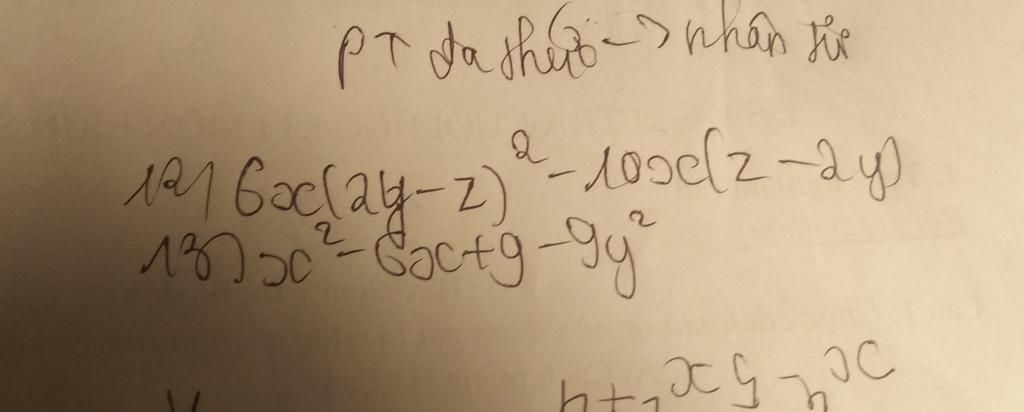 PT đa thức -> nhân tử
12) 6x(2y-z)² - 10x(z-2y)
13) x² - 6x + 9 - 9y²